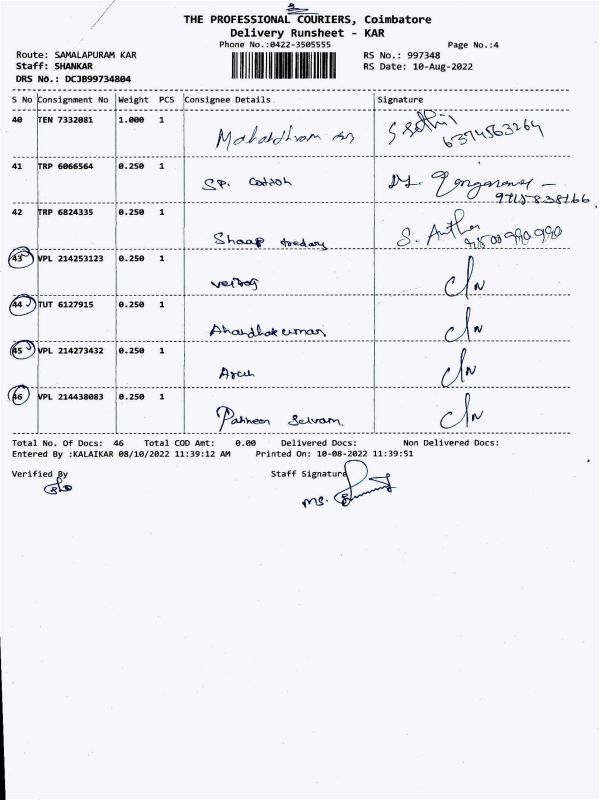 THE PROFESSIONAL COURIERS, Coimbatore
Delivery Runsheet - KAR
Phone No.:0422-3505555 Page No.:4
Route: SAMALAPURAM KAR RS No.: 997348
Staff: SHANKAR RS Date: 10-Aug-2022
DRS No.: DCJB99734804
S No Consignment No Weight PCS Consignee Details Signature
40 TEN 7332081 1.000 1
6374563264
41 TRP 6066564 0.250 1
SP. Cotton
9715838166
42 TRP 6824335 0.250 1
43 VPL 214253123 0.250 1
44 TUT 6127915 0.250 1
Anandhakumar
45 VPL 214273432 0.250 1
46 VPL 214438083 0.250 1
Selvam
Total No. Of Docs: 46 Total COD Amt: 0.00 Delivered Docs: Non Delivered Docs:
Entered By :KALAIKAR 08/10/2022 11:39:12 AM Printed On: 10-08-2022 11:39:51
Verified By Staff Signature